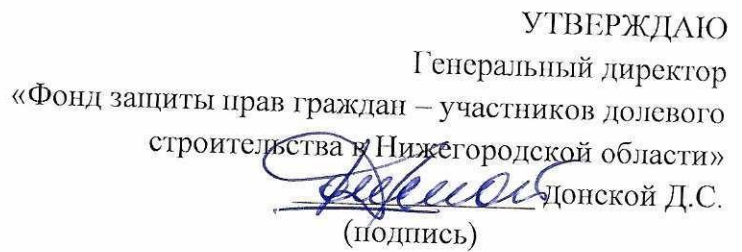 УТВЕРЖДАЮ
Генеральный директор
«Фонд защиты прав граждан – участников долевого
строительства в Нижегородской области»
Донской Д.С.
(подпись)